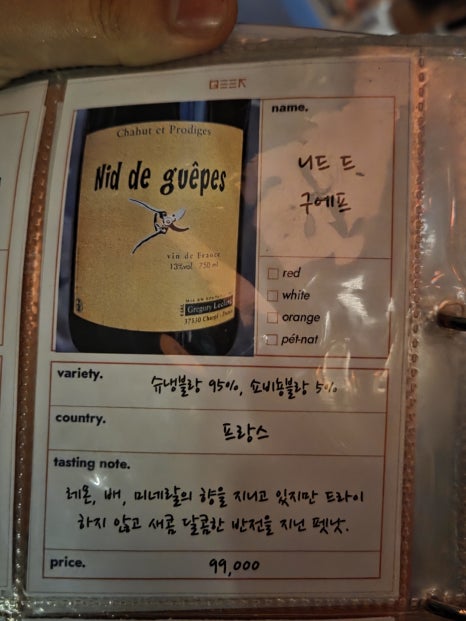 GEEK
Chahut et Prodiges
Nid de guêpes
vin de France
13%vol 750 ml
Grégory Leclerc
37530 Chargé - France
name.
니드 드
구에프
red
white
orange
pét-nat
variety.
슈냉블랑 95%, 쇼비뇽블랑 5%
country.
프랑스
tasting note.
레몬, 배, 미네랄의 향을 지니고 있지만 드라이
하지 않고 새콤 달콤한 반전을 지닌 펫낫.
price.
99,000